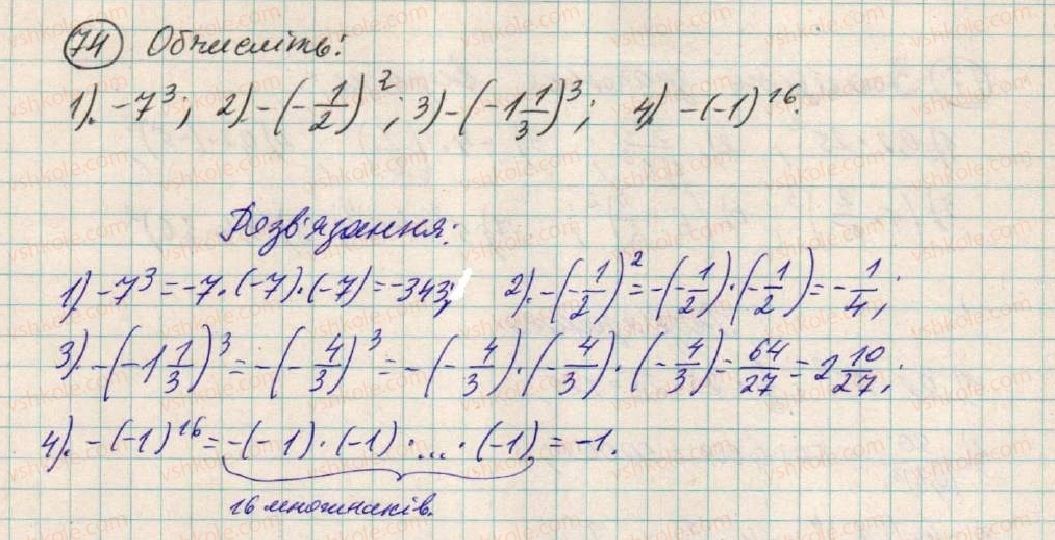 74 Обчисліть:
1). -7³; 2) -(-1/2)²; 3) -(-1 1/3)³; 4). -(-1)¹⁶.
Розв'язання:
1). -7³ = -7·(-7)·(-7) = -343; 2). -(-1/2)² = -(-1/2)·(-1/2) = -1/4;
3). -(-1 1/3)³ = -(-4/3)³ = -(-4/3)·(-4/3)·(-4/3) = 64/27 = 2 10/27;
4). -(-1)¹⁶ = -(-1)·(-1)·...·(-1) = -1.
16 множників.
vshkole.com